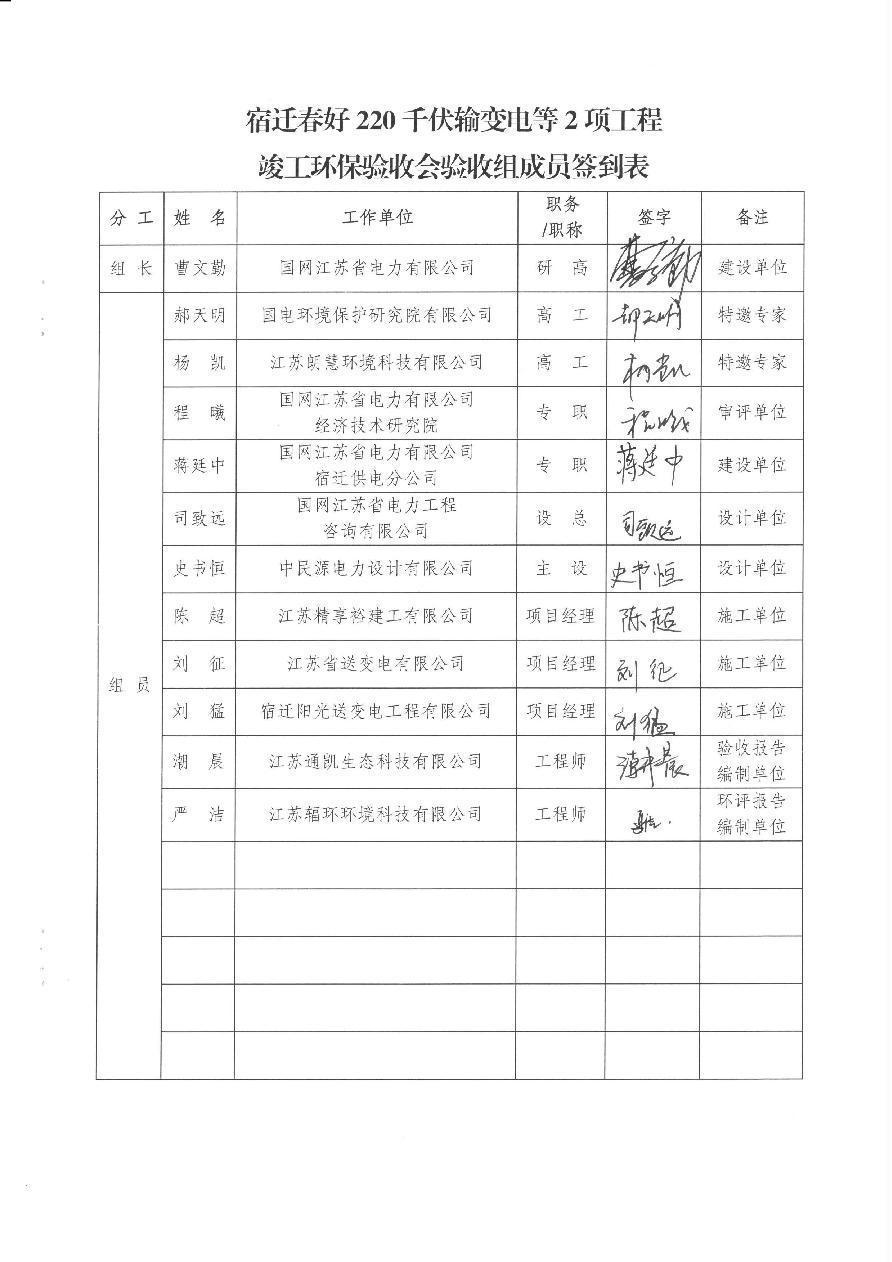 宿迁春好220千伏输变电等2项工程
竣工环保验收会验收组成员签到表
分 工 姓 名 工作单位 职务/职称 签字 备注
组 长 曹文勤 国网江苏省电力有限公司 研 高 曹文勤 建设单位
组 员
郝天明 国电环境保护研究院有限公司 高 工 郝天明 特邀专家
杨 凯 江苏朗慧环境科技有限公司 高 工 杨凯 特邀专家
程 曦 国网江苏省电力有限公司
经济技术研究院 专 职 程曦 审评单位
蒋廷中 国网江苏省电力有限公司
宿迁供电分公司 专 职 蒋廷中 建设单位
司致远 国网江苏省电力工程
咨询有限公司 设 总 司致远 设计单位
史书恒 中民源电力设计有限公司 主 设 史书恒 设计单位
陈 超 江苏精享裕建工有限公司 项目经理 陈超 施工单位
刘 征 江苏省送变电有限公司 项目经理 刘征 施工单位
刘 猛 宿迁阳光送变电工程有限公司 项目经理 刘猛 施工单位
潮 晨 江苏通凯生态科技有限公司 工程师 潮晨 验收报告
编制单位
严 洁 江苏辐环环境科技有限公司 工程师 严洁 环评报告
编制单位